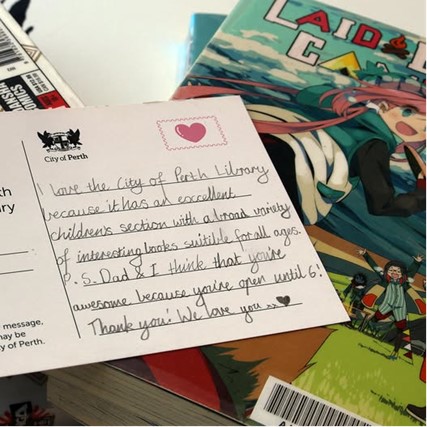 LAID-
CA
City of Perth
I love the City of Perth Library
because it has an excellent
children's section with a broad variety
of interesting books suitible for all ages.
P.S. Dad & I think that you're
awesome because you're open until 6!
Thank you! We love you
message,
may be
ty of Perth.